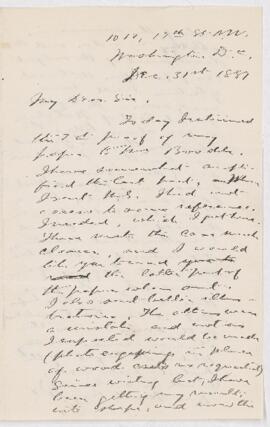 1012, 17th St. N.W.
Washington D.C.
Dec. 31st 1887
My Dear Sir,
To day I returned
the 2d proof of my
paper to Mrs
I have somewhat ampli-
fied the last part, When
I sent the I had not
access to some references
I needed, which I put here.
These make the case much
clearer, and I would
like you to read
the latter part of
the paper when out.
I also send better illus-
trations. The others were
a mistake and not as
I supposed would be made
(photo engraving in place
of wood cuts as requested)
Since writing last, I have
been getting my
into shape, and now the